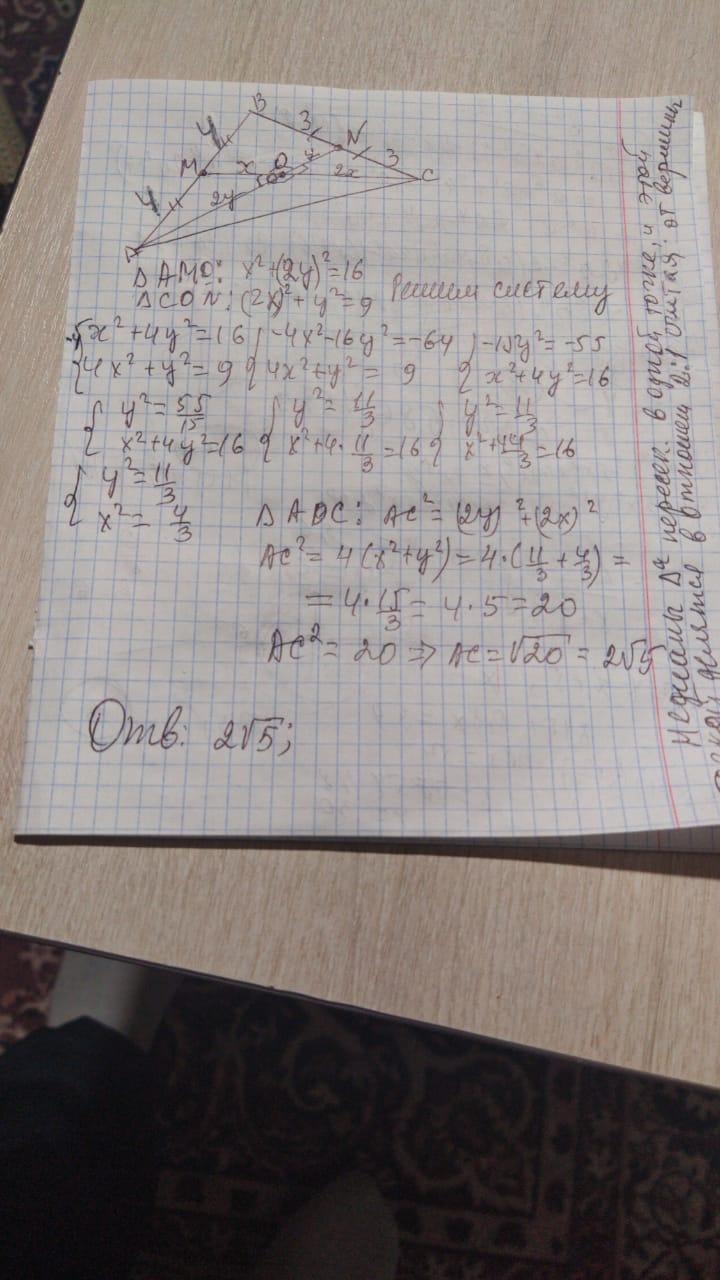 B
4 3 N
M x O y 3
2x C
4 2y
A
△AMO: x²+(2y)²=16
△CON: (2x)²+y²=9 Решим систему
{x²+4y²=16 {-4x²-16y²=-64 {-15y²=-55
{4x²+y²=9 {4x²+y²=9 {x²+4y²=16
{y²=55/15 {y²=11/3 {y²=11/3
{x²+4y²=16 {x²+4·11/3=16 {x²+44/3=16
{y²=11/3
{x²=4/3 △AOC: AC²=(2y)²+(2x)²
AC²=4(x²+y²)=4·(11/3+4/3)=
=4·15/3=4·5=20
AC²=20⇒AC=√20=2√5
Отв: 2√5;
Медианы △ᵃ пересек. в одной точке, и этой
точкой делятся в отношен 2:1 считая от вершины